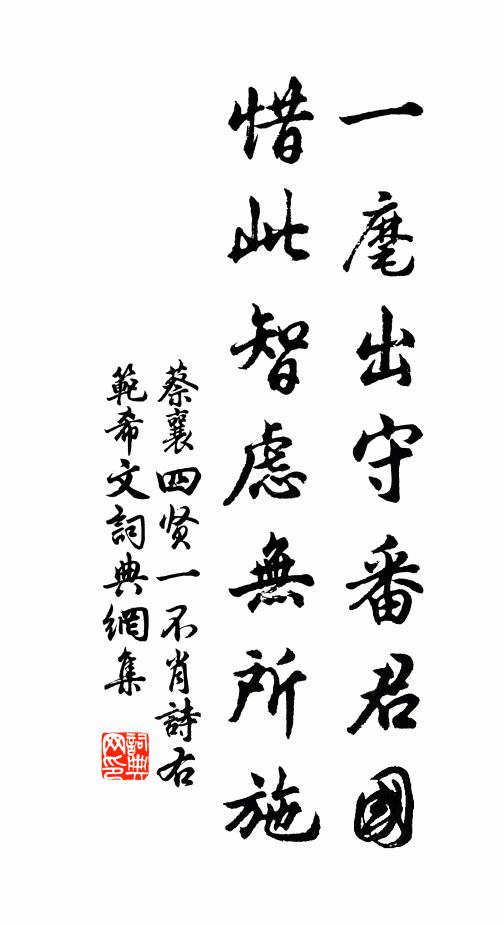 一麾出守番君國
惜此智慮無所施
蔡襄四贤一不肖詩右
範希文詞典網集
詞典
网印